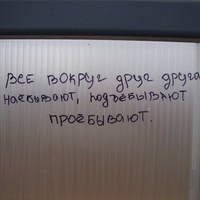 ВСЕ ВОКРУГ ДРУГ ДРУГА
НАЕБЫВАЮТ, ПОДЪЕБЫВАЮТ
ПРОЕБЫВАЮТ.